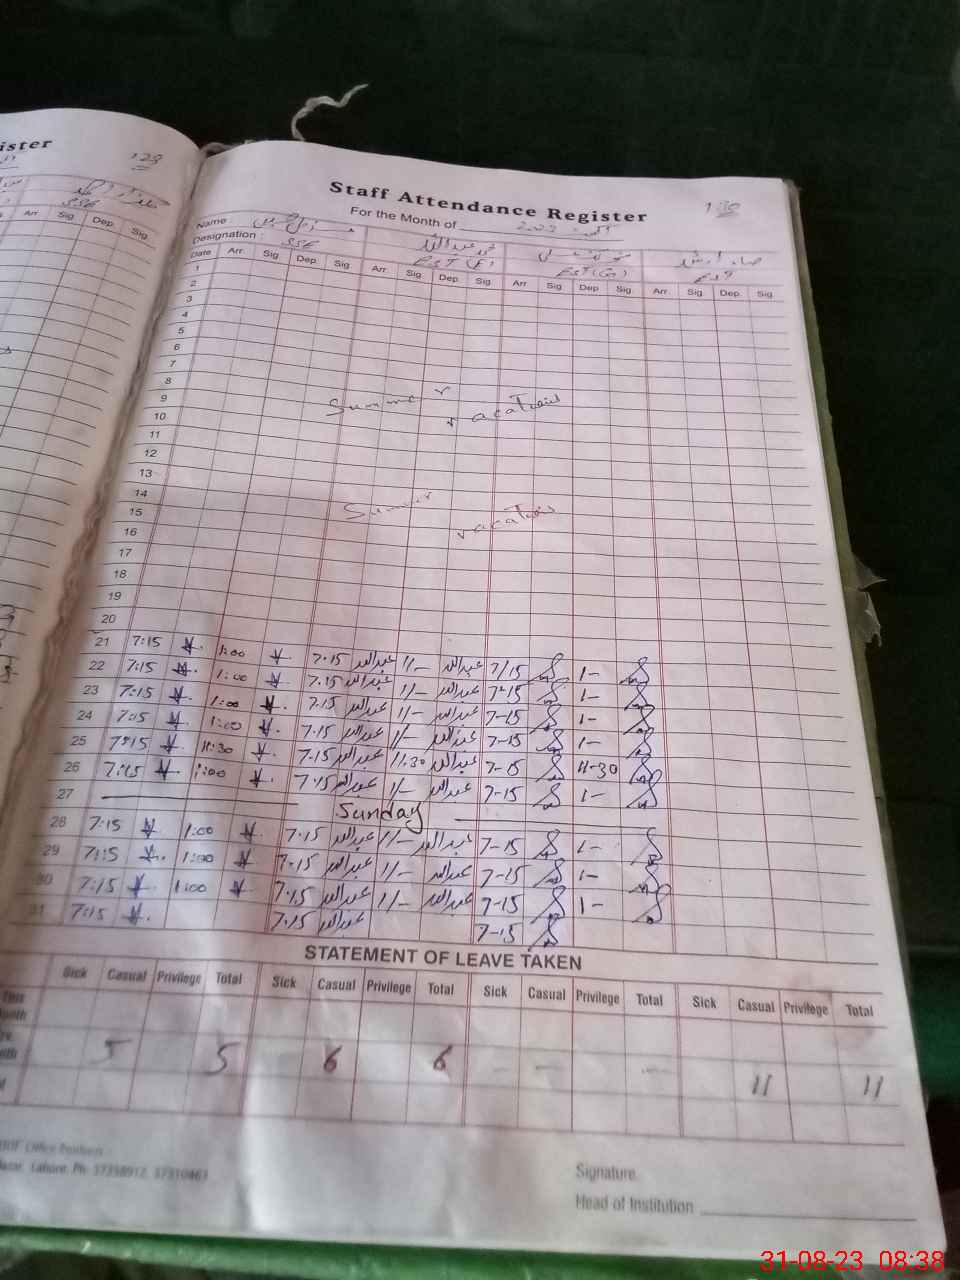 ister
128
SSE
Arr.
Sig.
Dep.
Sig.
Staff Attendance Register
130
For the Month of 2023
Name
محمد عبداللہ
Designation : SSE EST (F) EST (G) EST
Date Arr. Sig. Dep. Sig. Arr. Sig. Dep. Sig. Arr. Sig. Dep. Sig. Arr. Sig. Dep. Sig.
1
2
3
4
5
6
7
8
9 Summer vacations
10
11
12
13
14
15 Summer vacations
16
17
18
19
20
21 7:15 1:00 7.15 عبداللہ 1/- عبداللہ 7/15 1-
22 7:15 1:00 7.15 عبداللہ 1/- عبداللہ 7-15 1-
23 7:15 1:00 7.15 عبداللہ 1/- عبداللہ 7-15 1-
24 7:15 1:00 7.15 عبداللہ 1/- عبداللہ 7-15 1-
25 7:15 11:30 7.15 عبداللہ 11.30 عبداللہ 7-15 11-30
26 7:15 1:00 7.15 عبداللہ 1/- عبداللہ 7-15 1-
27 Sunday
28 7:15 1:00 7.15 عبداللہ 1/- عبداللہ 7-15 1-
29 7:15 1:00 7.15 عبداللہ 1/- عبداللہ 7-15 1-
30 7:15 1:00 7.15 عبداللہ 1/- عبداللہ 7-15 1-
31 7:15 7.15 عبداللہ 7-15
STATEMENT OF LEAVE TAKEN
Sick Casual Privilege Total Sick Casual Privilege Total Sick Casual Privilege Total Sick Casual Privilege Total
5 5 6 6 - - - 11 11
Lahore. Ph: 37358912, 37310463
Signature
Head of Institution
31-08-23 08:38